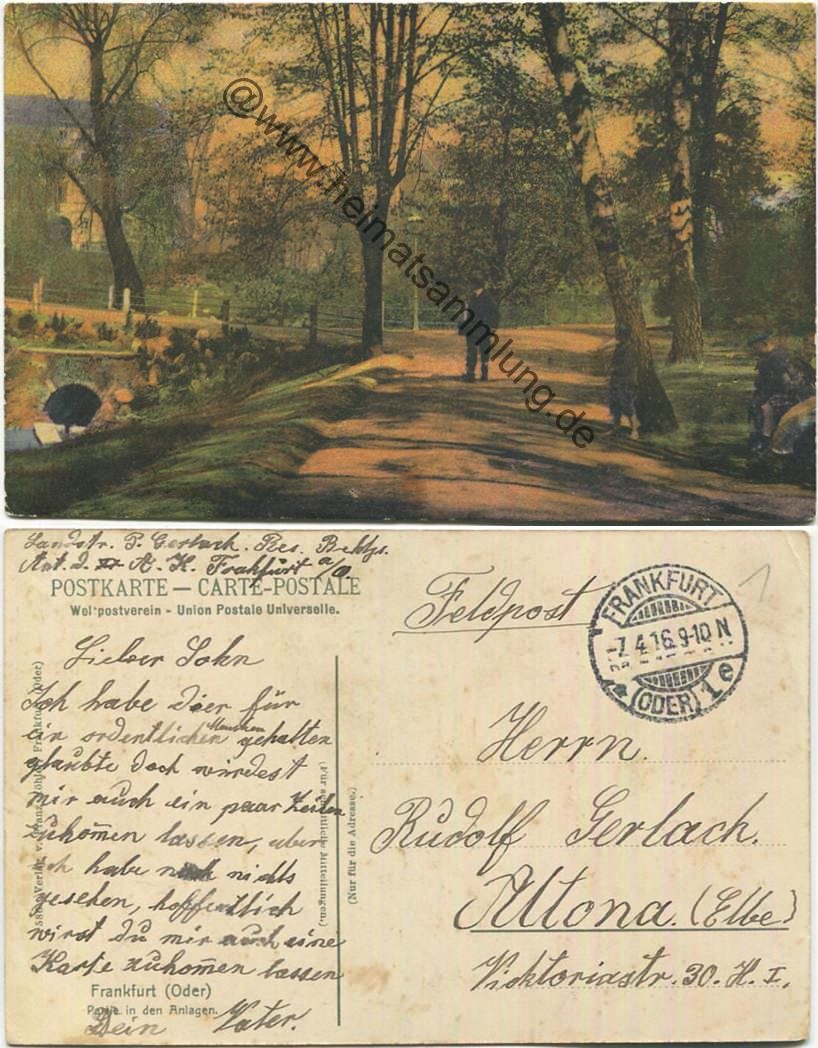 @www.heimatsammlung.de
Landstr. P. Gerlach. Res.
A. K. Frankfurt a/O.
POSTKARTE — CARTE-POSTALE
Weltpostverein - Union Postale Universelle.
Feldpost
FRANKFURT
-7.4.16. 9-10 N
* (ODER) 1e
Lieber Sohn
Ich habe dier für
ein ordentlichen Menschen gehalten
glaubte doch würdest
mir auch ein paar Zeilen
zukommen lassen, aber
ich habe noch nichts
gesehen, hoffentlich
wirst du mir auch eine
Karte zukommen lassen
Dein Vater.
Frankfurt (Oder)
Partie in den Anlagen.
Verlag v. Frankfurt (Oder)
(Für schriftliche Mitteilungen.)
(Nur für die Adresse.)
Herrn.
Rudolf Gerlach.
Altona. (Elbe)
Vicktoriastr. 30. H. I.